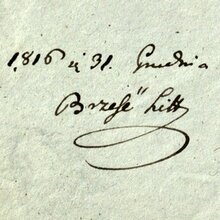 1816 ц 31. Grudnia
Brześć Litt